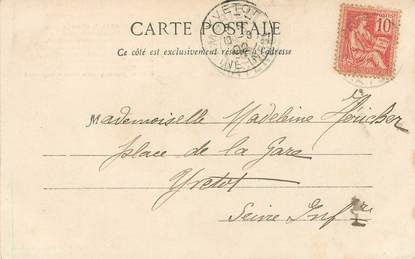 CARTE POSTALE
Ce côté est exclusivement réservé à l'adresse
YVETOT
02
10
Mademoiselle Madeleine
place de la Gare
Yvetot
Seine Infre